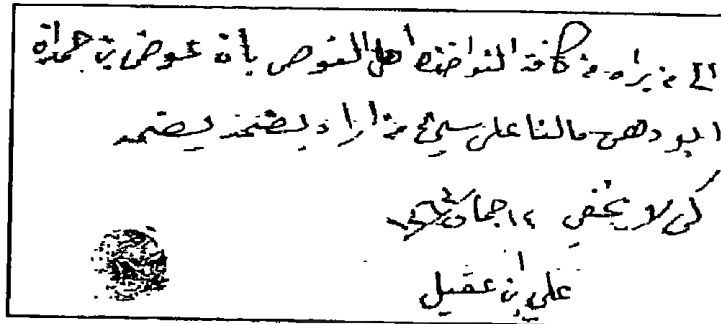 الى من يراه من كافة النواخذه اهل الغوص بان عوض بن حمزة
البودهي مالنا على سيح من اراد يضمد يضمد
كى لا يخفي ١٤ جماد
علي ابن عقيل